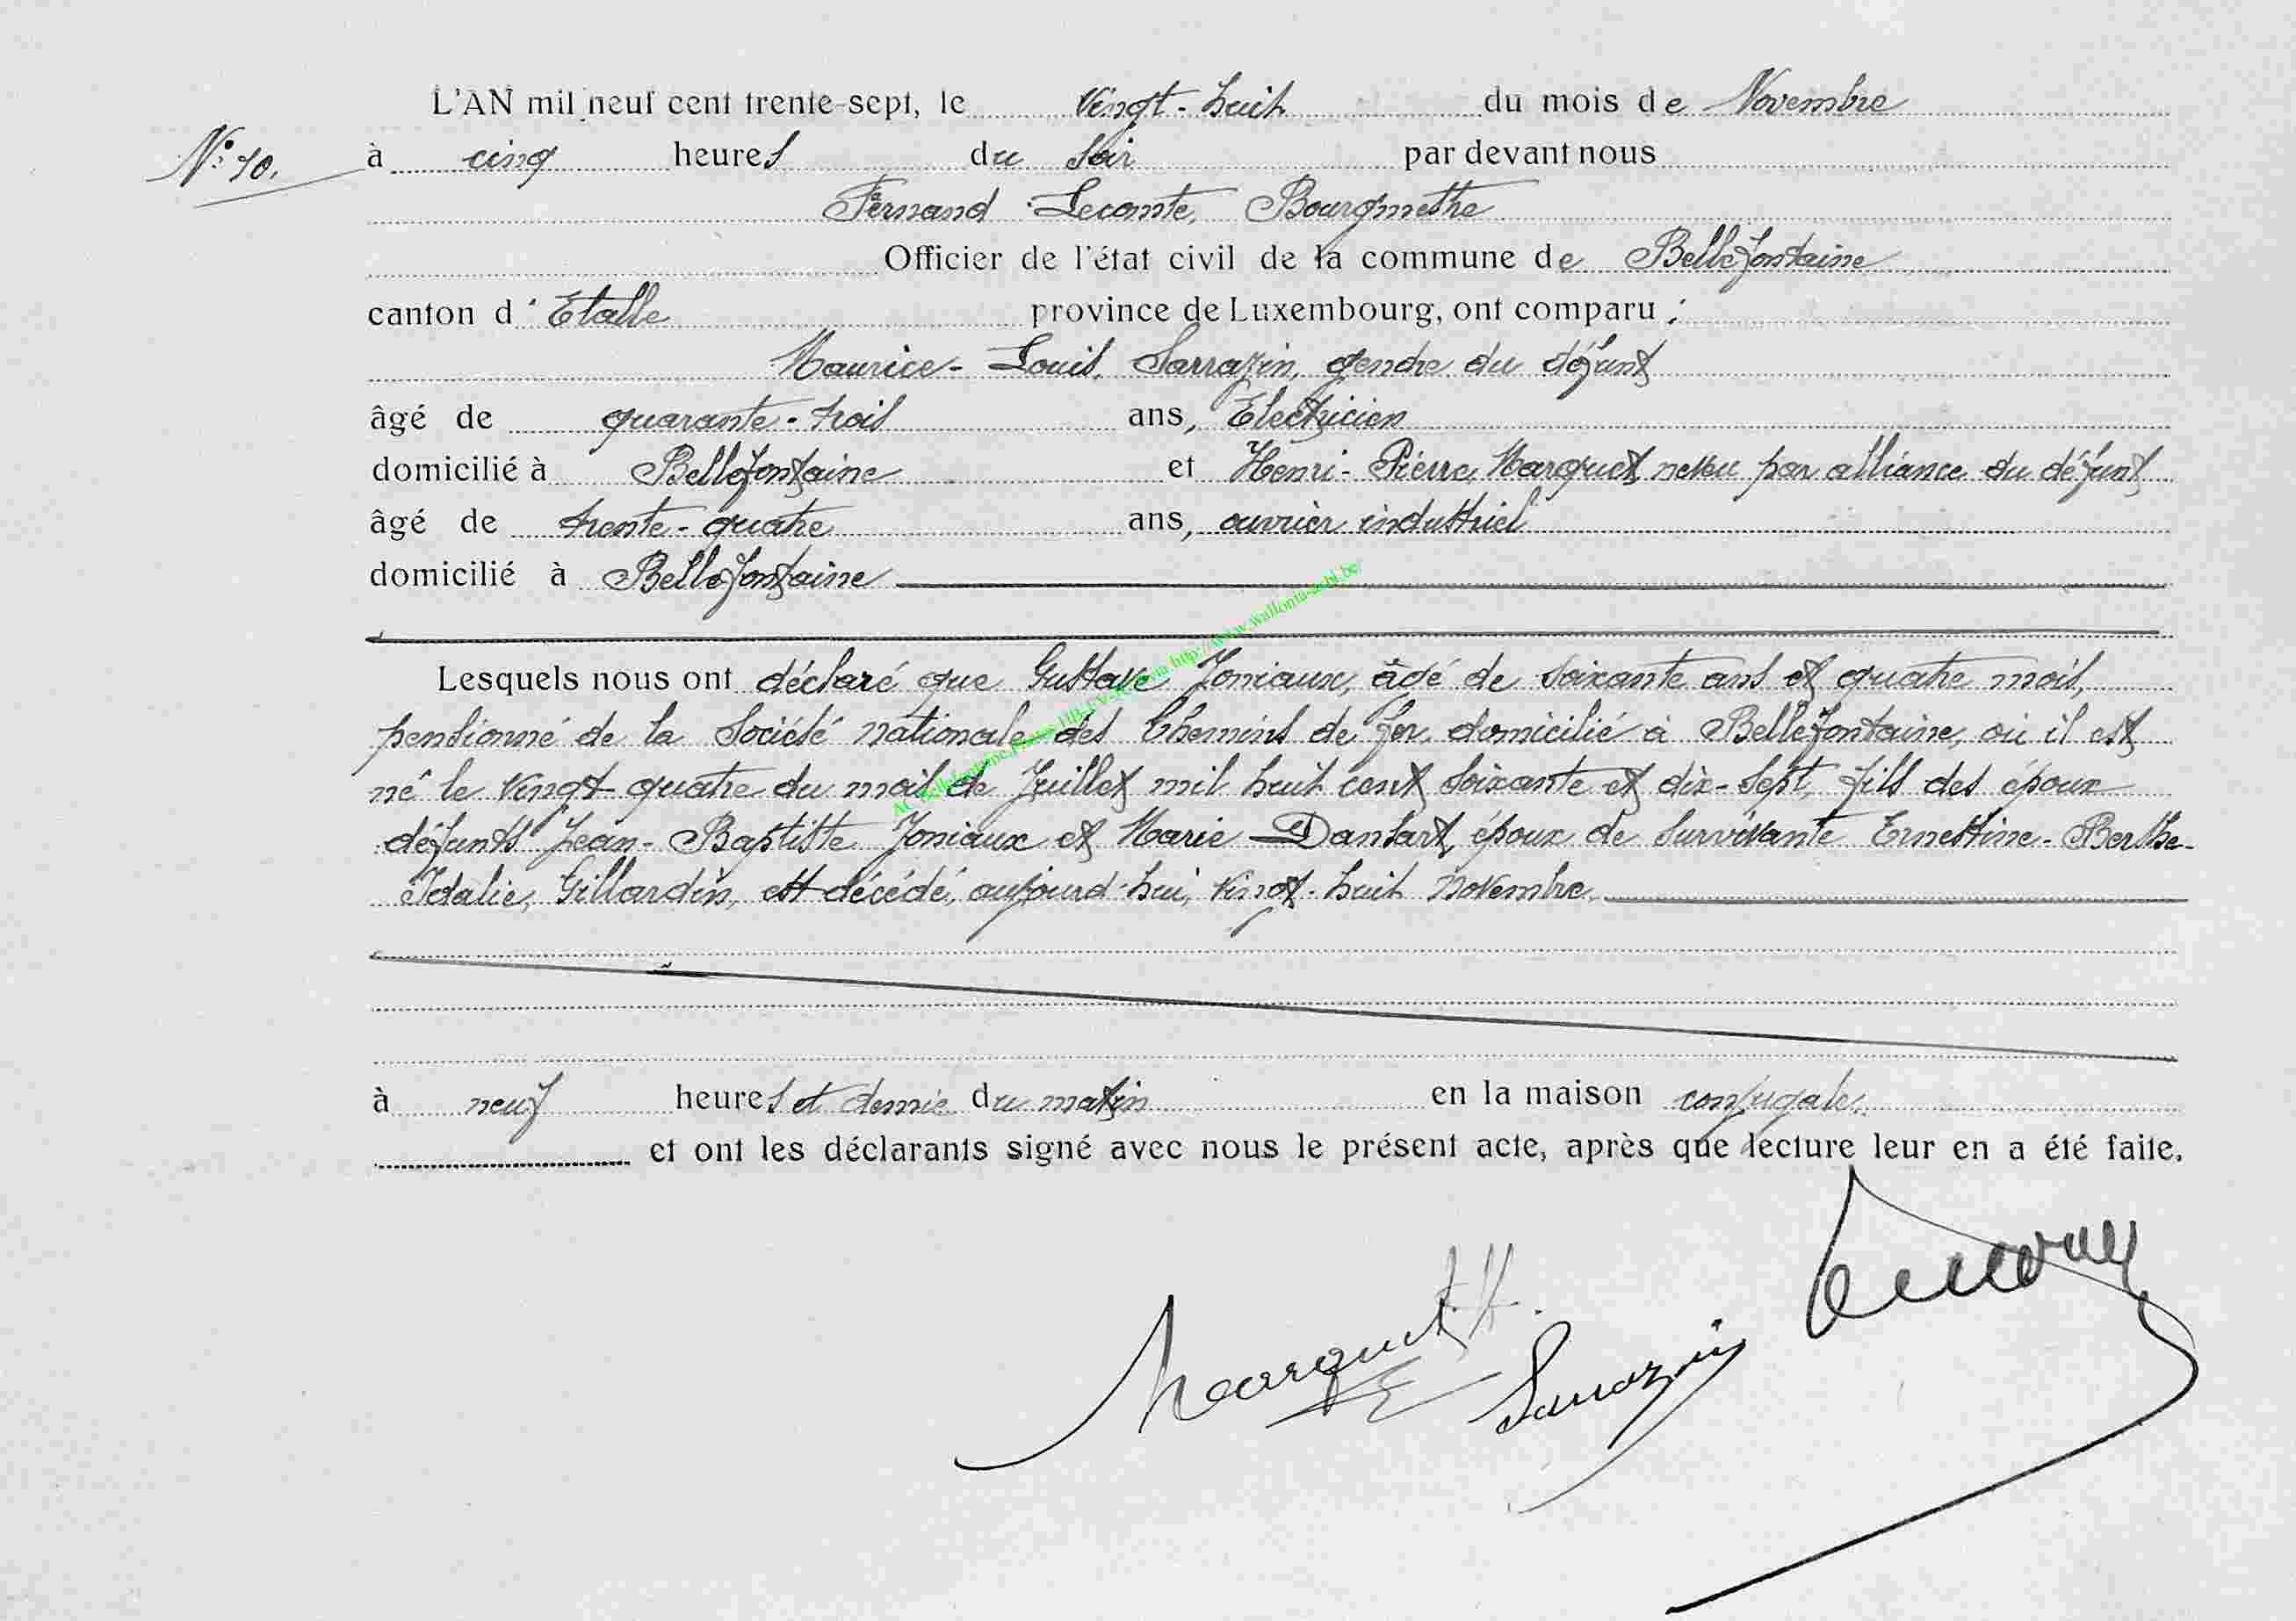 L'AN mil neuf cent trente-sept, le vingt-huit du mois de Novembre
N° 10. à cinq heures du soir par devant nous
Fernand Lecomte, Bourgmestre
Officier de l'état civil de la commune de Bellefontaine
canton d'Etalle province de Luxembourg, ont comparu :
Maurice-Louis, Sarrazin, gendre du défunt
âgé de quarante-trois ans, Electricien
domicilié à Bellefontaine et Henri-Pierre, Marquet, neveu par alliance du défunt
âgé de trente-quatre ans, ouvrier industriel
domicilié à Bellefontaine
Lesquels nous ont déclaré que Gustave Joniaux, âgé de soixante ans et quatre mois,
pensionné de la Société nationale des Chemins de fer, domicilié à Bellefontaine, où il est
né le vingt quatre du mois de Juillet mil huit cent soixante et dix-sept, fils des époux
défunts Jean-Baptiste Joniaux et Marie Dansart, époux de survivante Ernestine-Berthe-
Idalie, Gillardin, est décédé, aujourd'hui, vingt-huit novembre.
à neuf heures et demie du matin en la maison conjugale.
et ont les déclarants signé avec nous le présent acte, après que lecture leur en a été faite.
Marquet H.
Sarrazin
Lecomte